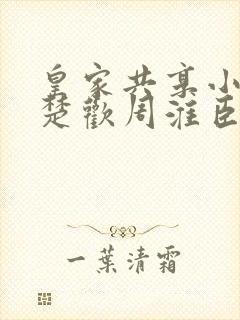 皇家共享小
楚歡周淮臣
一葉清霜